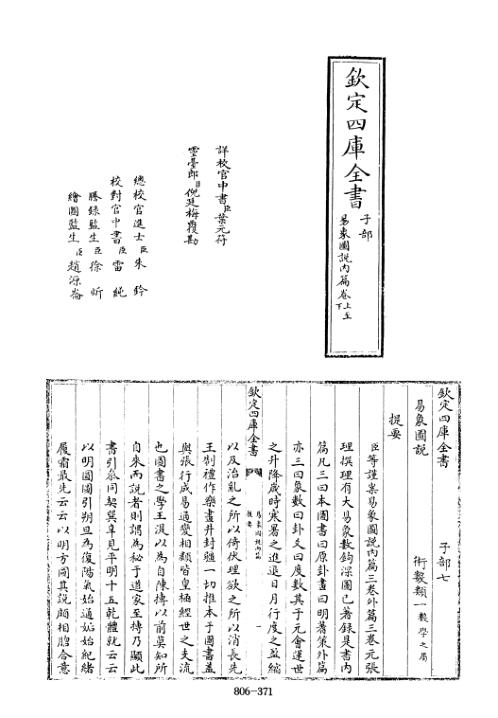 欽定四庫全書
子部
易象圖說內篇卷上至下
詳校官中書臣葉元符
靈臺郎臣倪廷梅覆勘
總校官進士臣朱鈐
校對官中書臣雷純
謄錄監生臣徐忻
繪圖監生臣趙源崙
欽定四庫全書 子部七
易象圖說 術數類一數學之屬
提要
臣等謹案易象圖說內篇三卷外篇三卷元張
理撰理有大易象數鉤深圖已著錄是書內
篇凡三曰本圖書曰原卦畫曰明蓍策外篇
亦三曰象數曰卦爻曰度數其于元會運世
之升降歲時寒暑之進退日月行度之盈縮
欽定四庫全書
易象圖說內篇
提要
一
以及治亂之所以倚伏理欲之所以消長先
王制禮作樂畫井封疆一切推本于圖書蓋
與張行成易通變相類皆皇極經世之支流
也圖書之學王湜以為自陳摶以前莫知所
自來而說者則謂為秘于道家至摶乃顯此
書引參同契巽辛見平明十五乾體就云云
以明圓圖引朔旦為復陽氣始通姤始紀緒
履霜最先云云以明方圖其說頗相脗合意
806-371